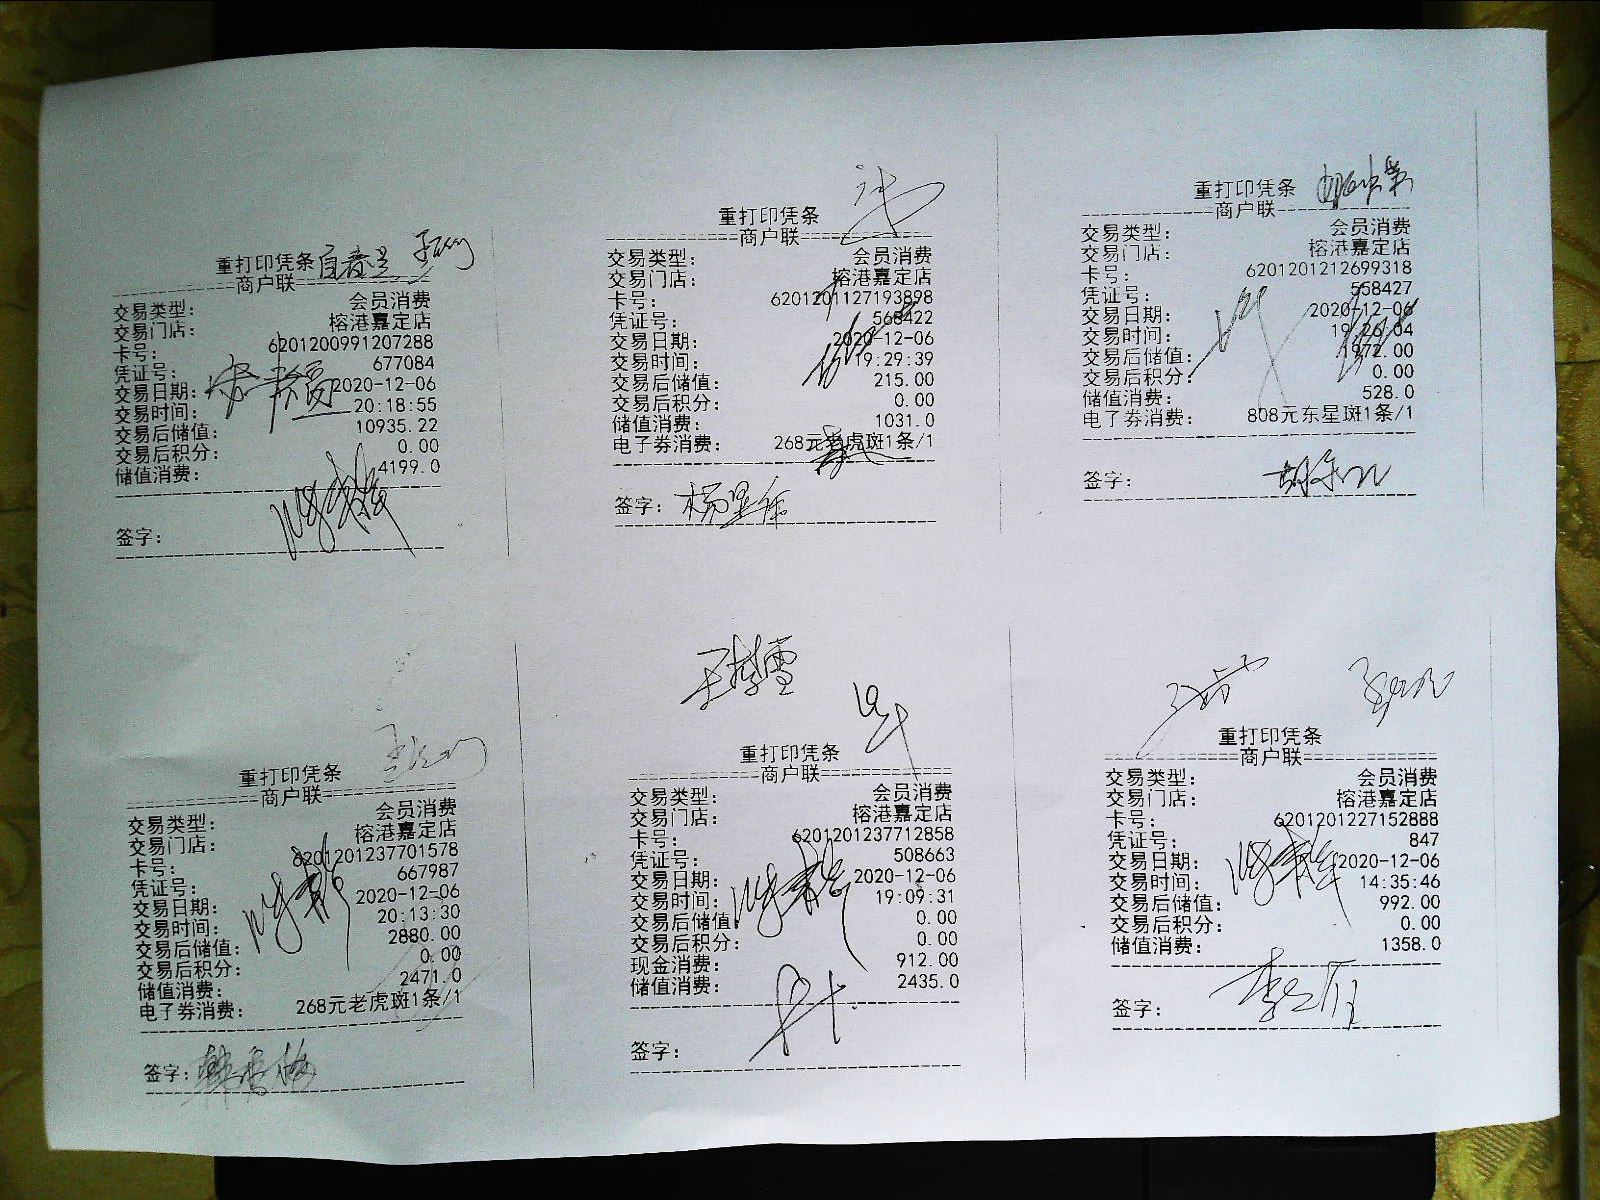 重打印凭条
商户联
交易类型: 会员消费
交易门店: 榕港嘉定店
卡号: 6201200991207288
凭证号: 677084
交易日期: 2020-12-06
交易时间: 20:18:55
交易后储值: 10935.22
交易后积分: 0.00
储值消费: 4199.0
签字:
重打印凭条
商户联
交易类型: 会员消费
交易门店: 榕港嘉定店
卡号: 6201201127193898
凭证号: 568422
交易日期: 2020-12-06
交易时间: 19:29:39
交易后储值: 215.00
交易后积分: 0.00
储值消费: 1031.0
电子券消费: 268元老虎斑1条/1
签字:
重打印凭条
商户联
交易类型: 会员消费
交易门店: 榕港嘉定店
卡号: 6201201212699318
凭证号: 558427
交易日期: 2020-12-06
交易时间: 19:26:04
交易后储值: 1972.00
交易后积分: 0.00
储值消费: 528.0
电子券消费: 808元东星斑1条/1
签字:
重打印凭条
商户联
交易类型: 会员消费
交易门店: 榕港嘉定店
卡号: 6201201237701578
凭证号: 667987
交易日期: 2020-12-06
交易时间: 20:13:30
交易后储值: 2880.00
交易后积分: 0.00
储值消费: 2471.0
电子券消费: 268元老虎斑1条/1
签字:
重打印凭条
商户联
交易类型: 会员消费
交易门店: 榕港嘉定店
卡号: 6201201237712858
凭证号: 508663
交易日期: 2020-12-06
交易时间: 19:09:31
交易后储值: 0.00
交易后积分: 0.00
现金消费: 912.00
储值消费: 2435.0
签字:
重打印凭条
商户联
交易类型: 会员消费
交易门店: 榕港嘉定店
卡号: 6201201227152888
凭证号: 847
交易日期: 2020-12-06
交易时间: 14:35:46
交易后储值: 992.00
交易后积分: 0.00
储值消费: 1358.0
签字: